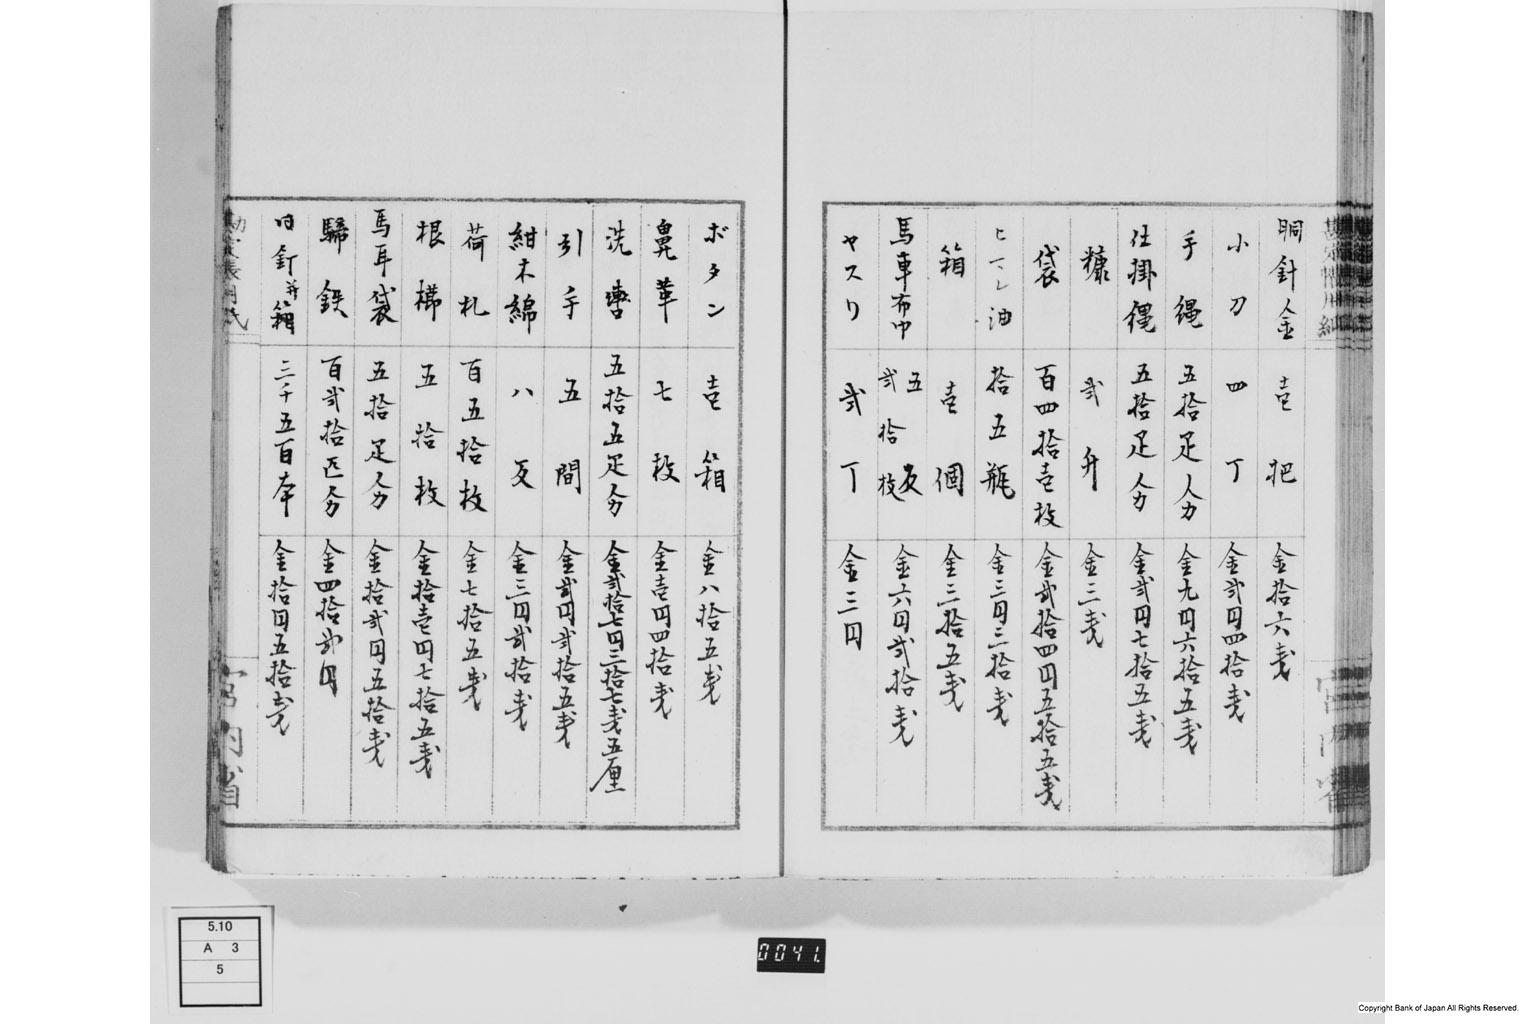 胴針金 壱把 金拾六戔
小刀 四丁 金弐円四拾戔
手縄 五拾疋分 金九円六拾五戔
仕掛縄 五拾疋分 金弐円七拾五戔
糠 弐升 金三戔
袋 百四拾壱枚 金弐拾四円五拾五戔
ヒマシ油 拾五瓶 金三円三拾戔
箱 壱個 金三拾五戔
馬車布巾 五反 弐拾枚 金六円弐拾戔
ヤスリ 弐丁 金三円
ボタン 壱箱 金八拾五戔
鼻革 七枚 金壱円四拾戔
洗轡 五拾五疋分 金弐拾七円三拾七戔五厘
引手 五間 金弐円弐拾五戔
紺木綿 八反 金三円弐拾戔
荷札 百五拾枚 金七拾五戔
根櫛 五拾枚 金拾壱円七拾五戔
馬耳袋 五拾疋分 金拾弐円五拾戔
蹄鉄 百弐拾匹分 金四拾弐円
同釘并箱 三千五百本 金拾円五拾戔
宮内省
5.10
A 3
5
0041.
Copyright Bank of Japan All Rights Reserved.